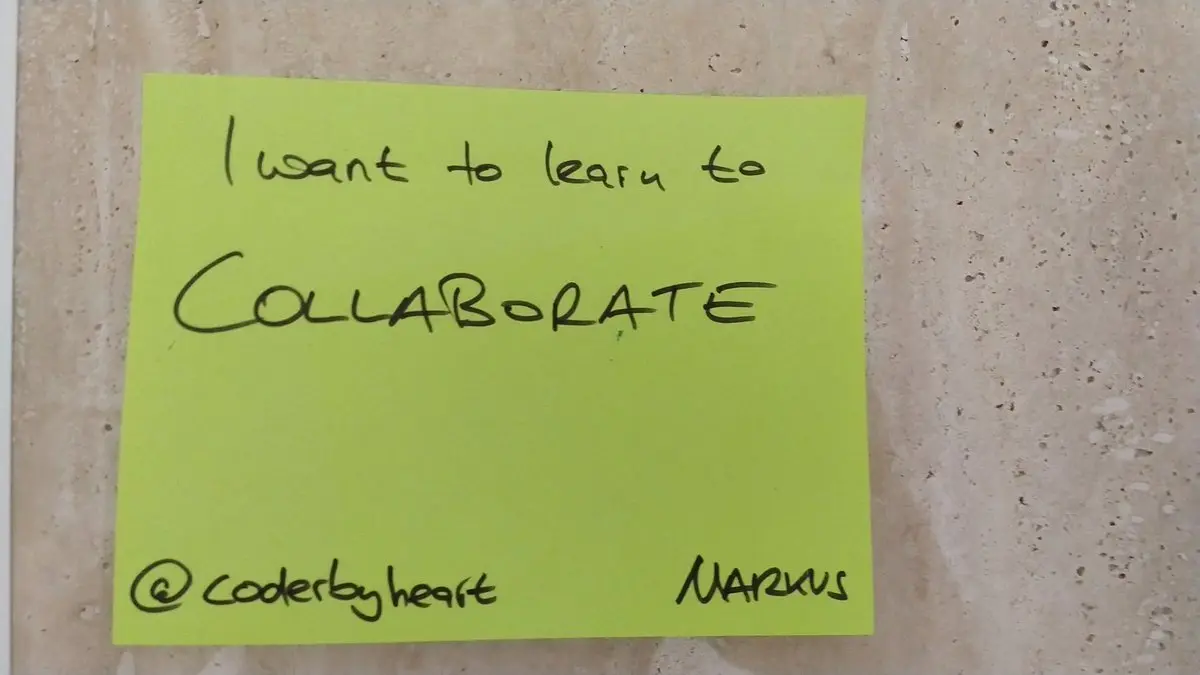 I want to learn to
COLLABORATE
@coderbyheart MARKUS